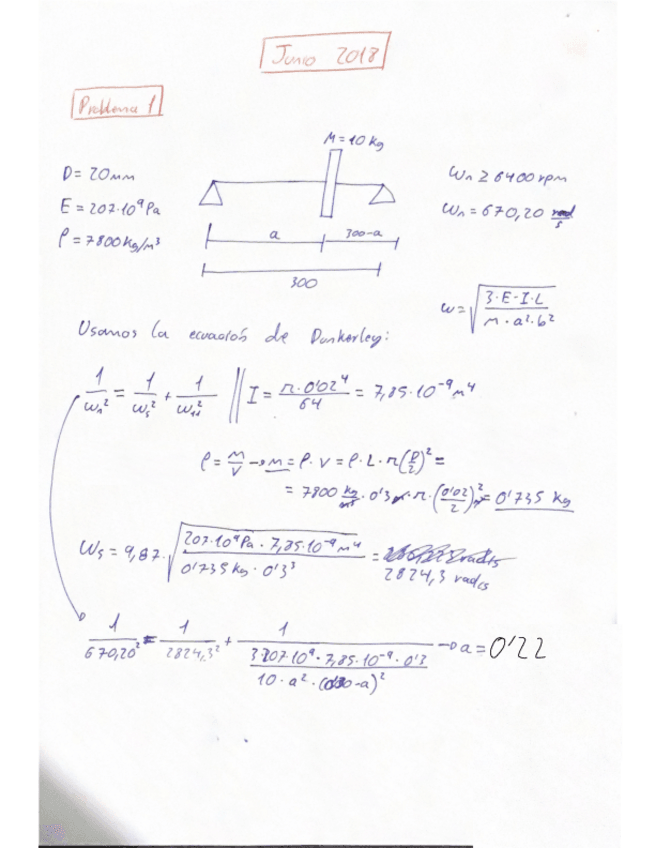 Junio 2018
Problema 1
M=10 kg
D= 20mm
E= 207·10⁹ Pa
ρ= 7800 kg/m³
a
300-a
300
Wn ≥ 6400 rpm
Wn = 670,20 rad/s
ω = √(3·E·I·L / M·a²·b²)
Usamos la ecuación de Dunkerley:
1/ωn² = 1/ωs² + 1/ω11² || I = π·0'02⁴/64 = 7,85·10⁻⁹ m⁴
ρ = m/V → m = ρ·V = ρ·L·π(D/2)² =
= 7800 kg/m³ · 0'3 m·π·(0'02/2)² m² = 0'735 kg
Ws = 9,87·√(207·10⁹Pa·7,85·10⁻⁹m⁴ / 0'735 kg·0'3³) =
2824,3 rad/s
1/670,20² = 1/2824,3² + 1/(3·207·10⁹·7,85·10⁻⁹·0'3 / 10·a²·(0'30-a)²) → a = 0'22